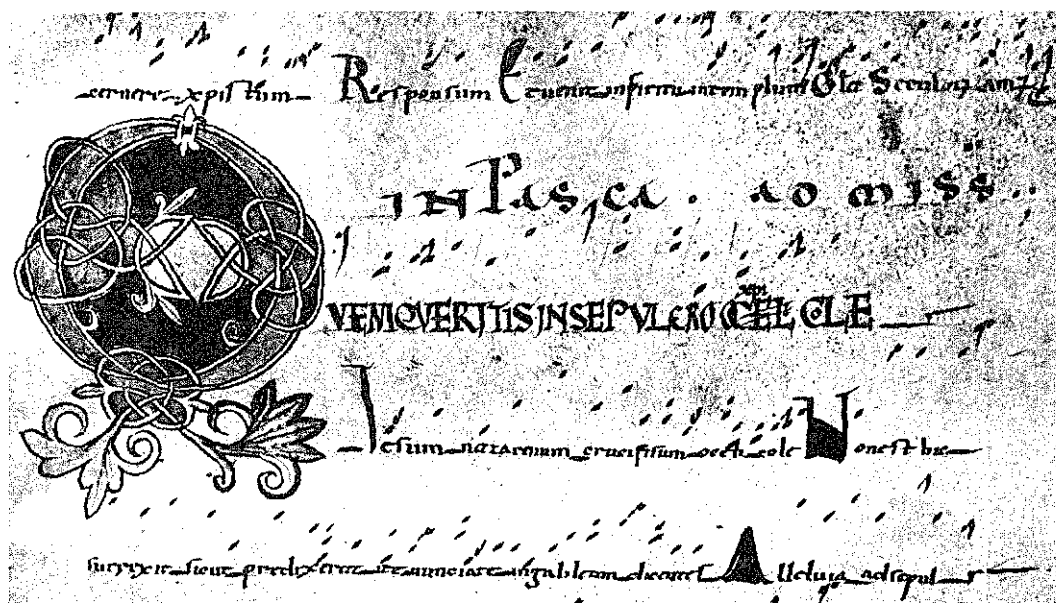 cernere xpistum Responsum Et venit in spiritu in templum Gla Seculorum am
IN PASCA . AD MISS .
QVEM QVERITIS IN SEPVLCRO XPI CEL CLE
Iesum nazarenum crucifixum o celicole Non est hic
surrexit sicut predixerat ite nunciate in galileam dicentes Alleluia ad sepul